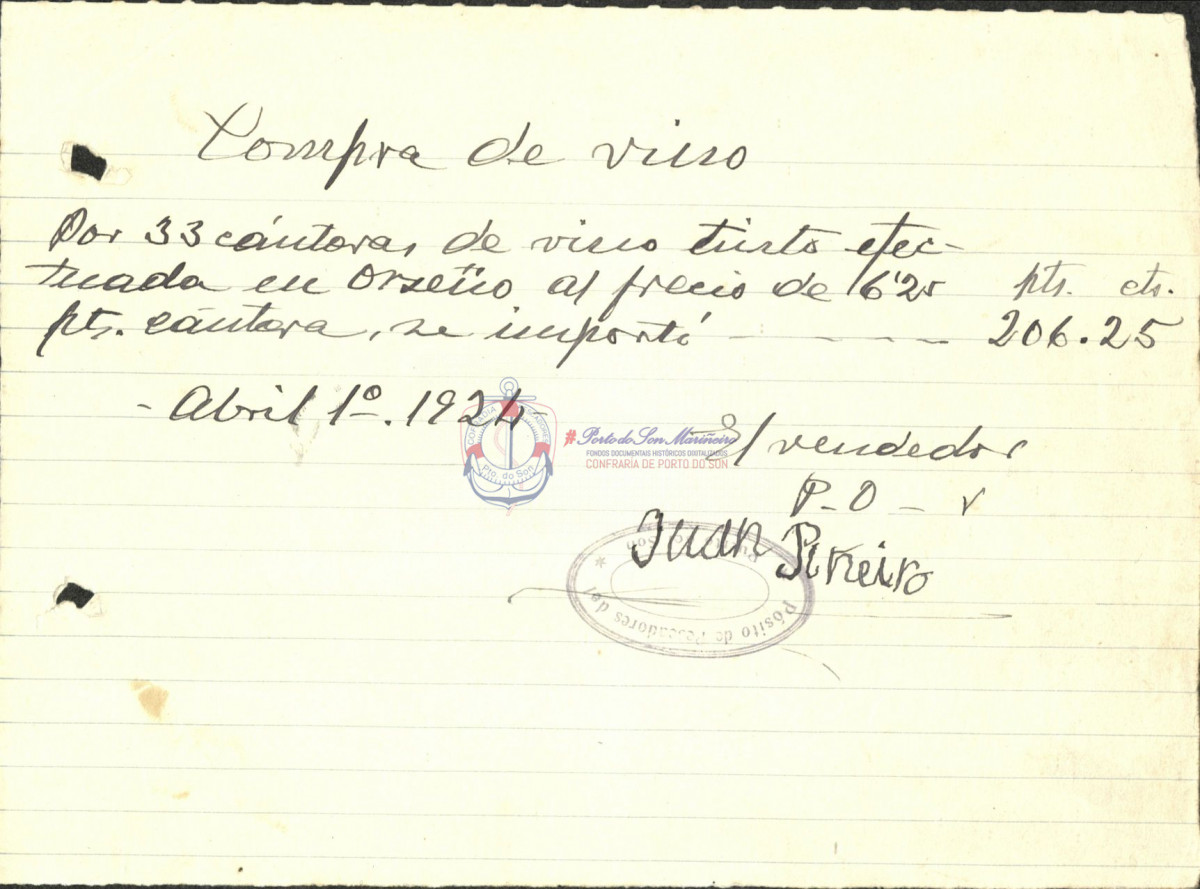 Compra de vino
Por 33 cántaras de vino tinto efec-
tuada en Orseño al precio de 6'25 pts. cts.
pts. cántara, se importó - - - - - - 206.25
- Abril 1º. 1924-
El vendedor
P-O-
Juan Piñeiro
Pósito de Pescadores del Puerto del Son *
CONFRARIA
Pto. do Son
#Porto do Son Mariñeiro
FONDOS DOCUMENTAIS HISTÓRICOS DIXITALIZADOS
CONFRARIA DE PORTO DO SON